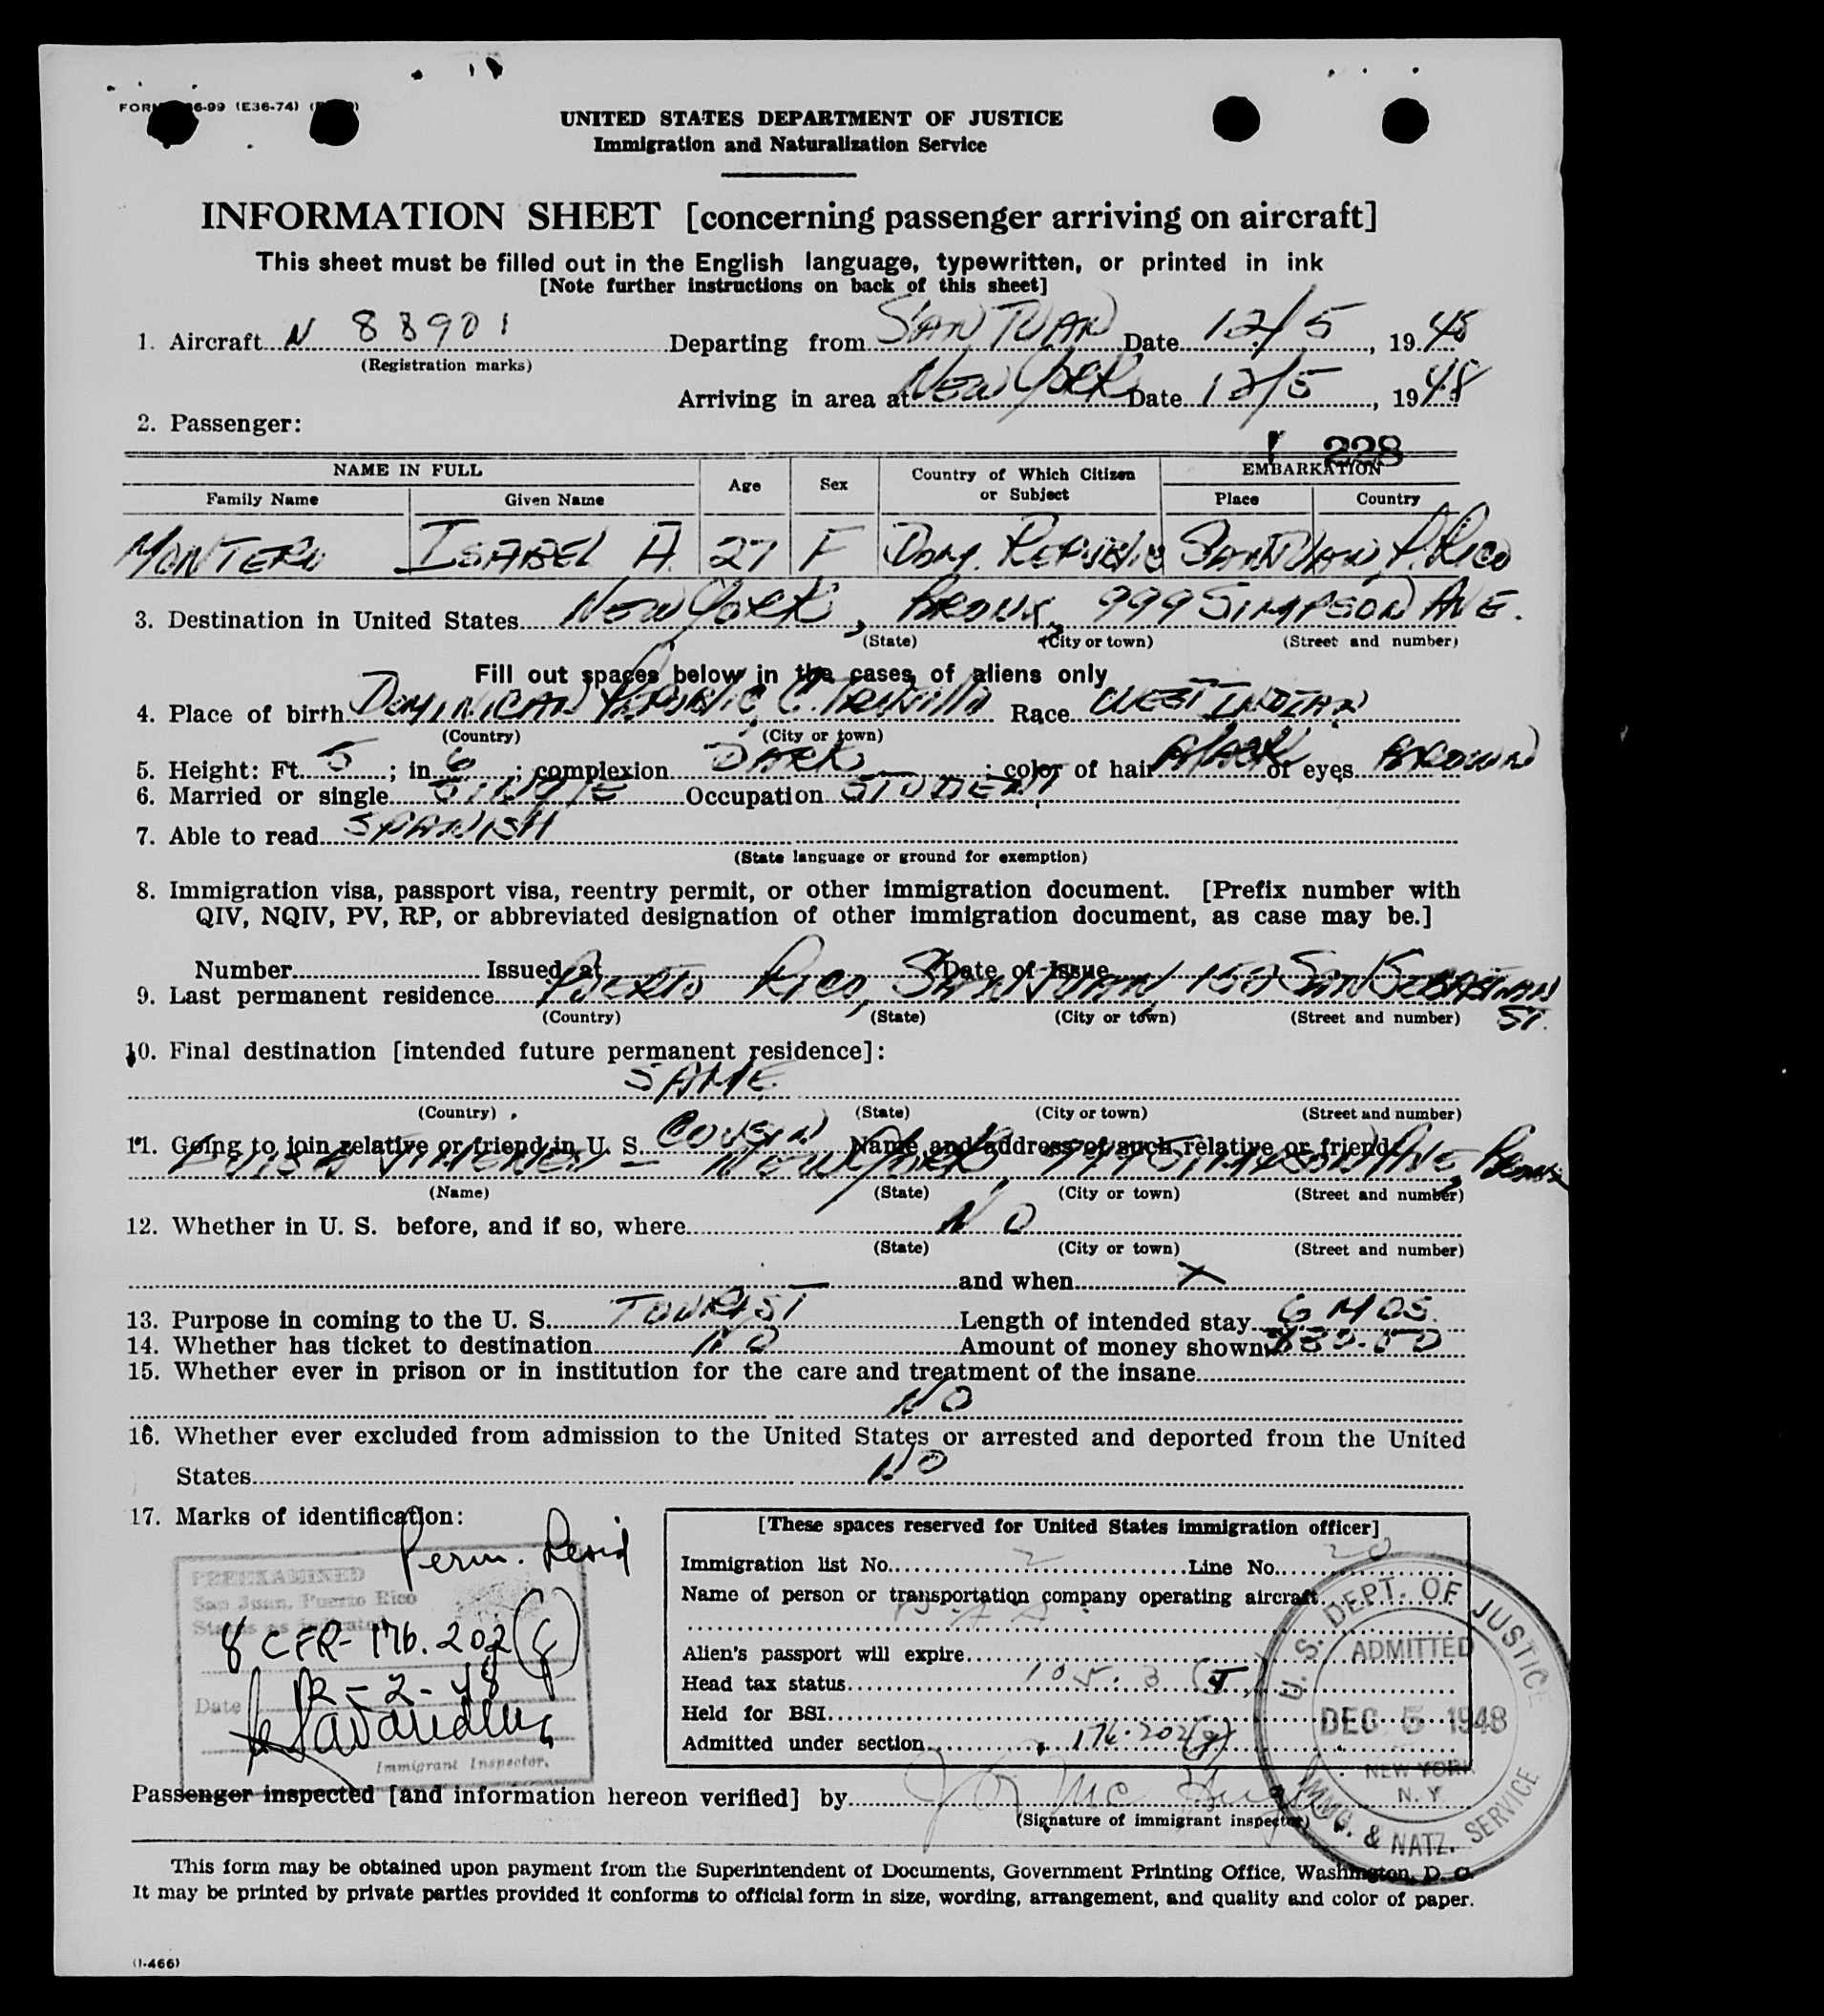 UNITED STATES DEPARTMENT OF JUSTICE
Immigration and Naturalization Service
INFORMATION SHEET [concerning passenger arriving on aircraft]
This sheet must be filled out in the English language, typewritten, or printed in ink
[Note further instructions on back of this sheet]
1. Aircraft N 88901 Departing from SAN JUAN Date 12/5, 1948
(Registration marks)
Arriving in area at NEW YORK Date 12/5, 1948
2. Passenger:
228
NAME IN FULL Age Sex Country of Which Citizen or Subject EMBARKATION
Family Name Given Name Place Country
MONTERO ISABEL A. 27 F DOM. REPUBLIC SAN JUAN P. RICO
3. Destination in United States NEW YORK, BRONX, 999 SIMPSON AVE.
(State) (City or town) (Street and number)
Fill out spaces below in the cases of aliens only
4. Place of birth DOMINICAN REPUBLIC, C. TRUJILLO Race WEST INDIAN
(Country) (City or town)
5. Height: Ft. 5; in. 6; complexion DARK; color of hair BLACK or eyes BROWN
6. Married or single SINGLE Occupation STUDENT
7. Able to read SPANISH
(State language or ground for exemption)
8. Immigration visa, passport visa, reentry permit, or other immigration document. [Prefix number with
QIV, NQIV, PV, RP, or abbreviated designation of other immigration document, as case may be.]
Number Issued at Date of Issue
9. Last permanent residence PUERTO RICO, SAN JUAN SAN SEBASTIAN ST.
(Country) (State) (City or town) (Street and number)
10. Final destination [intended future permanent residence]:
SAME
(Country) (State) (City or town) (Street and number)
11. Going to join relative or friend in U. S. COUSIN Name and address of such relative or friend:
JIMENEZ - NEW YORK, 999 SIMPSON AVE, BRONX
(Name) (State) (City or town) (Street and number)
12. Whether in U. S. before, and if so, where NO
(State) (City or town) (Street and number)
and when X
13. Purpose in coming to the U. S. TOURIST Length of intended stay 6 MOS.
14. Whether has ticket to destination NO Amount of money shown
15. Whether ever in prison or in institution for the care and treatment of the insane
NO
16. Whether ever excluded from admission to the United States or arrested and deported from the United
States NO
17. Marks of identification:
Perm. Resid
PREEXAMINED
San Juan, Puerto Rico
Status as indicated
8 CFR-176.202(g)
Date 12-2-48
Immigrant Inspector.
[These spaces reserved for United States immigration officer]
Immigration list No. 2 Line No. 20
Name of person or transportation company operating aircraft
Alien's passport will expire
Head tax status 105.3 (J)
Held for BSI
Admitted under section 176.202(g)
U. S. DEPT. OF JUSTICE
ADMITTED
DEC 5 1948
NEW YORK
N. Y.
IMMG. & NATZ. SERVICE
Passenger inspected [and information hereon verified] by
(Signature of immigrant inspector)
This form may be obtained upon payment from the Superintendent of Documents, Government Printing Office, Washington, D. C.
It may be printed by private parties provided it conforms to official form in size, wording, arrangement, and quality and color of paper.
(I-466)